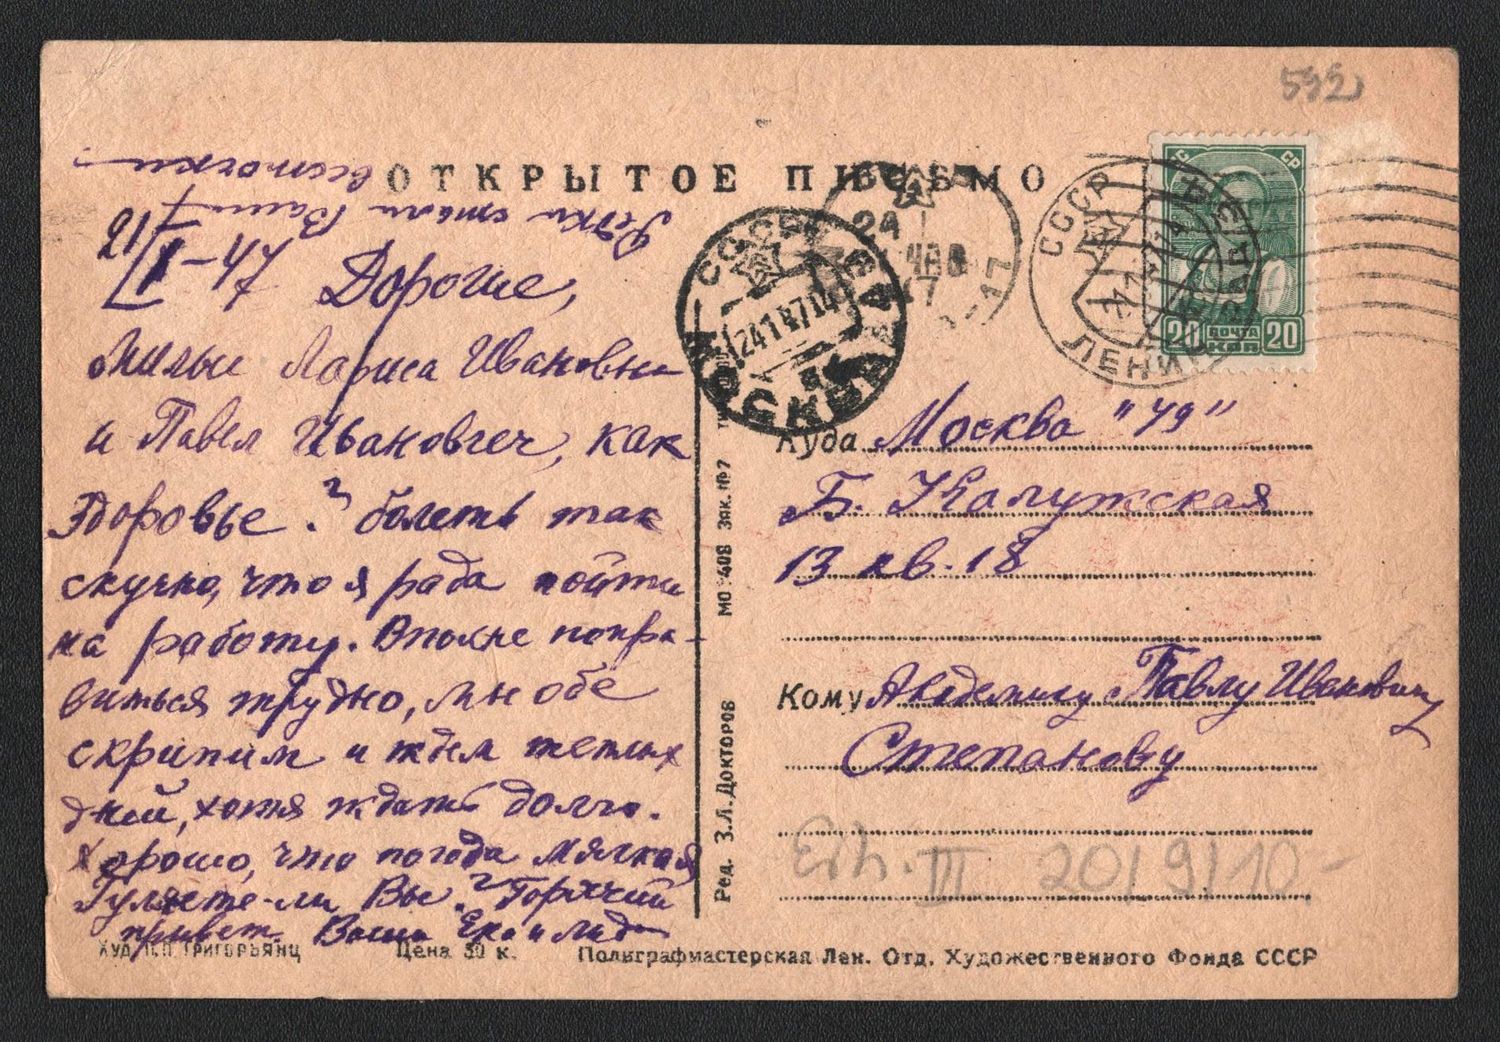 592
ОТКРЫТОЕ ПИСЬМО
Редки стали Ваши
весточки
21/I-47 Дорогие,
милые Лариса Ивановна
и Павел Иванович, как
здоровье? болеть так
скучно, что я рада пойти
на работу. Вполне попра-
виться трудно, мы обе
скрипим и ждем теплых
дней, хотя ждать долго.
Хорошо, что погода мягкая
Гуляете-ли Вы? Горячий
привет. Ваши
СССР
МОСКВА
24 1 47 14
24
47
СССР
ЛЕНИНГРАД
СССР
20 ПОЧТА 20
КОП
Куда Москва "49"
Б. Калужская
13 кв. 18
Кому Академику Павлу Ивановичу
Степанову
III 20/9/10-
Ред. З.Л. Докторов
Зак. №7
Худ. Григорьянц Цена 30 к. Полиграфмастерская Лен. Отд. Художественного Фонда СССР